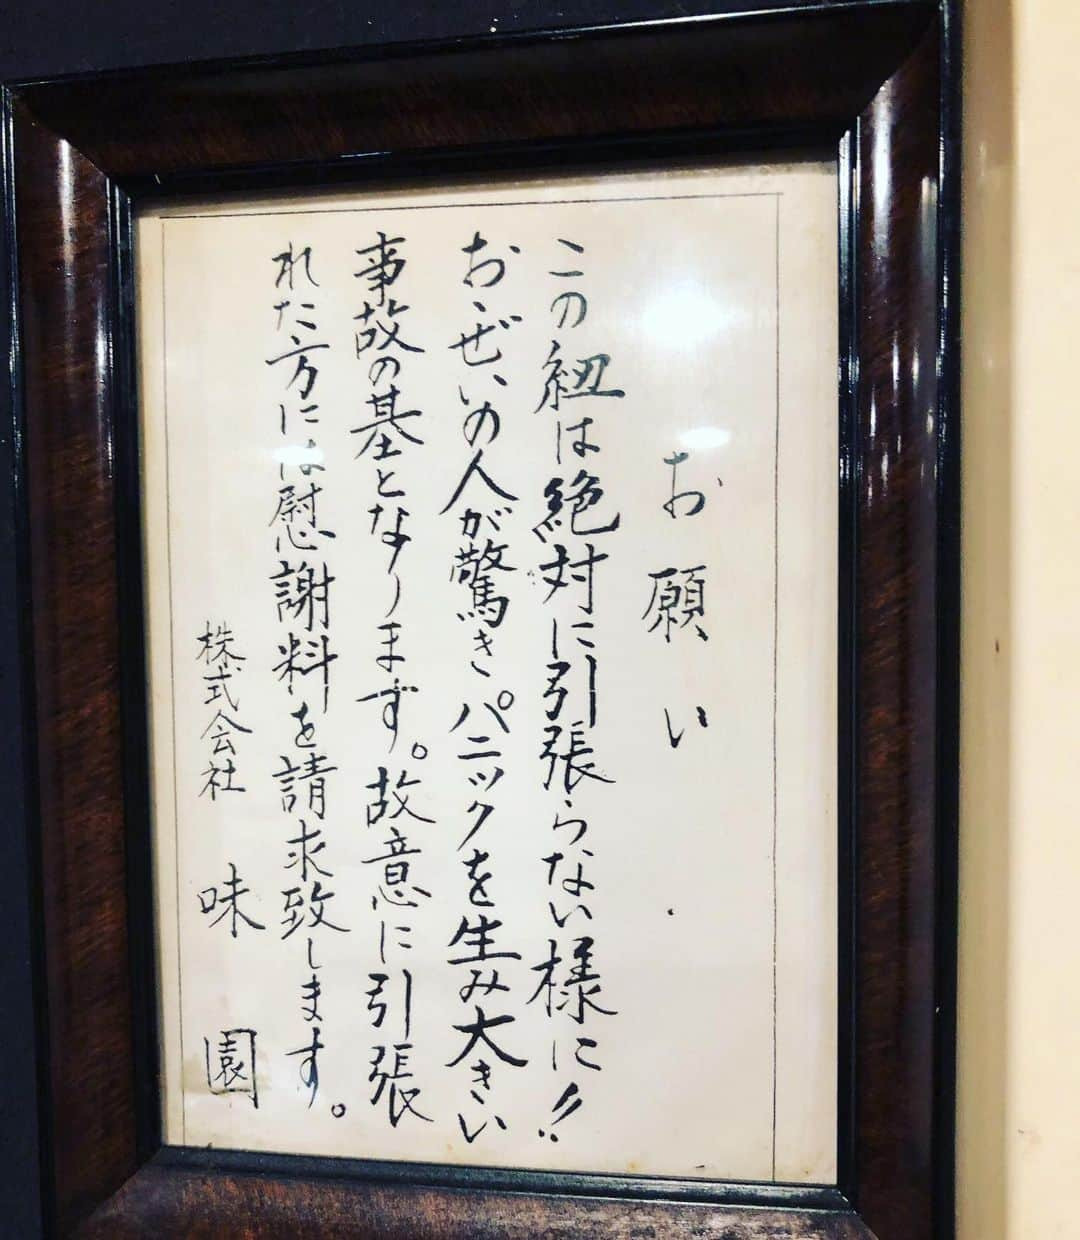 お願い
この紐は絶対に引張らない様に!!
おゝぜいの人が驚きパニックを生み大きい
事故の基となります。故意に引張
れた方には慰謝料を請求致します。
株式会社 味園